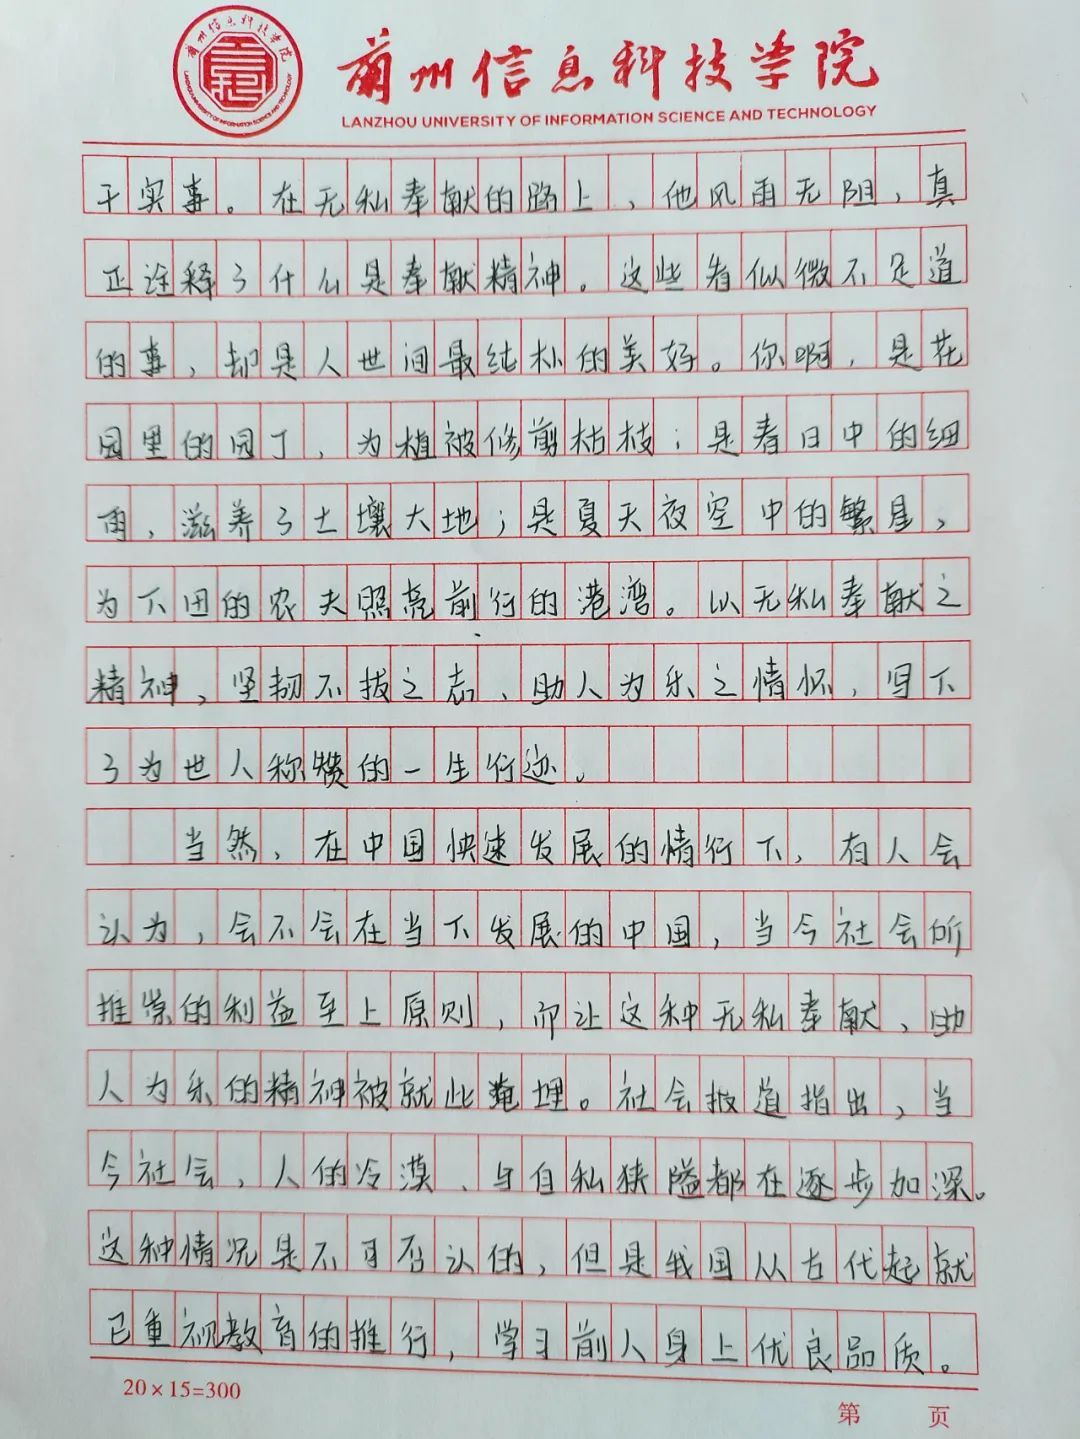 蘭州信息科技学院
LANZHOU UNIVERSITY OF INFORMATION SCIENCE AND TECHNOLOGY
蘭州信息科技学院
LANZHOU UNIVERSITY OF INFORMATION SCIENCE AND TECHNOLOGY
干实事。在无私奉献的路上，他风雨无阻，真
正诠释了什么是奉献精神。这些看似微不足道
的事，却是人世间最纯朴的美好。你啊，是花
园里的园丁，为植被修剪枯枝；是春日中的细
雨，滋养了土壤大地；是夏天夜空中的繁星，
为下田的农夫照亮前行的港湾。以无私奉献之
精神，坚韧不拔之志、助人为乐之情怀，写下
了为世人称赞的一生行迹。
当然，在中国快速发展的情行下，有人会
认为，会不会在当下发展的中国，当今社会所
推崇的利益至上原则，而让这种无私奉献、助
人为乐的精神被就此掩埋。社会报道指出，当
今社会，人的冷漠、与自私狭隘都在逐步加深。
这种情况是不可否认的，但是我国从古代起就
已重视教育的推行，学习前人身上优良品质。
20×15=300
第 页